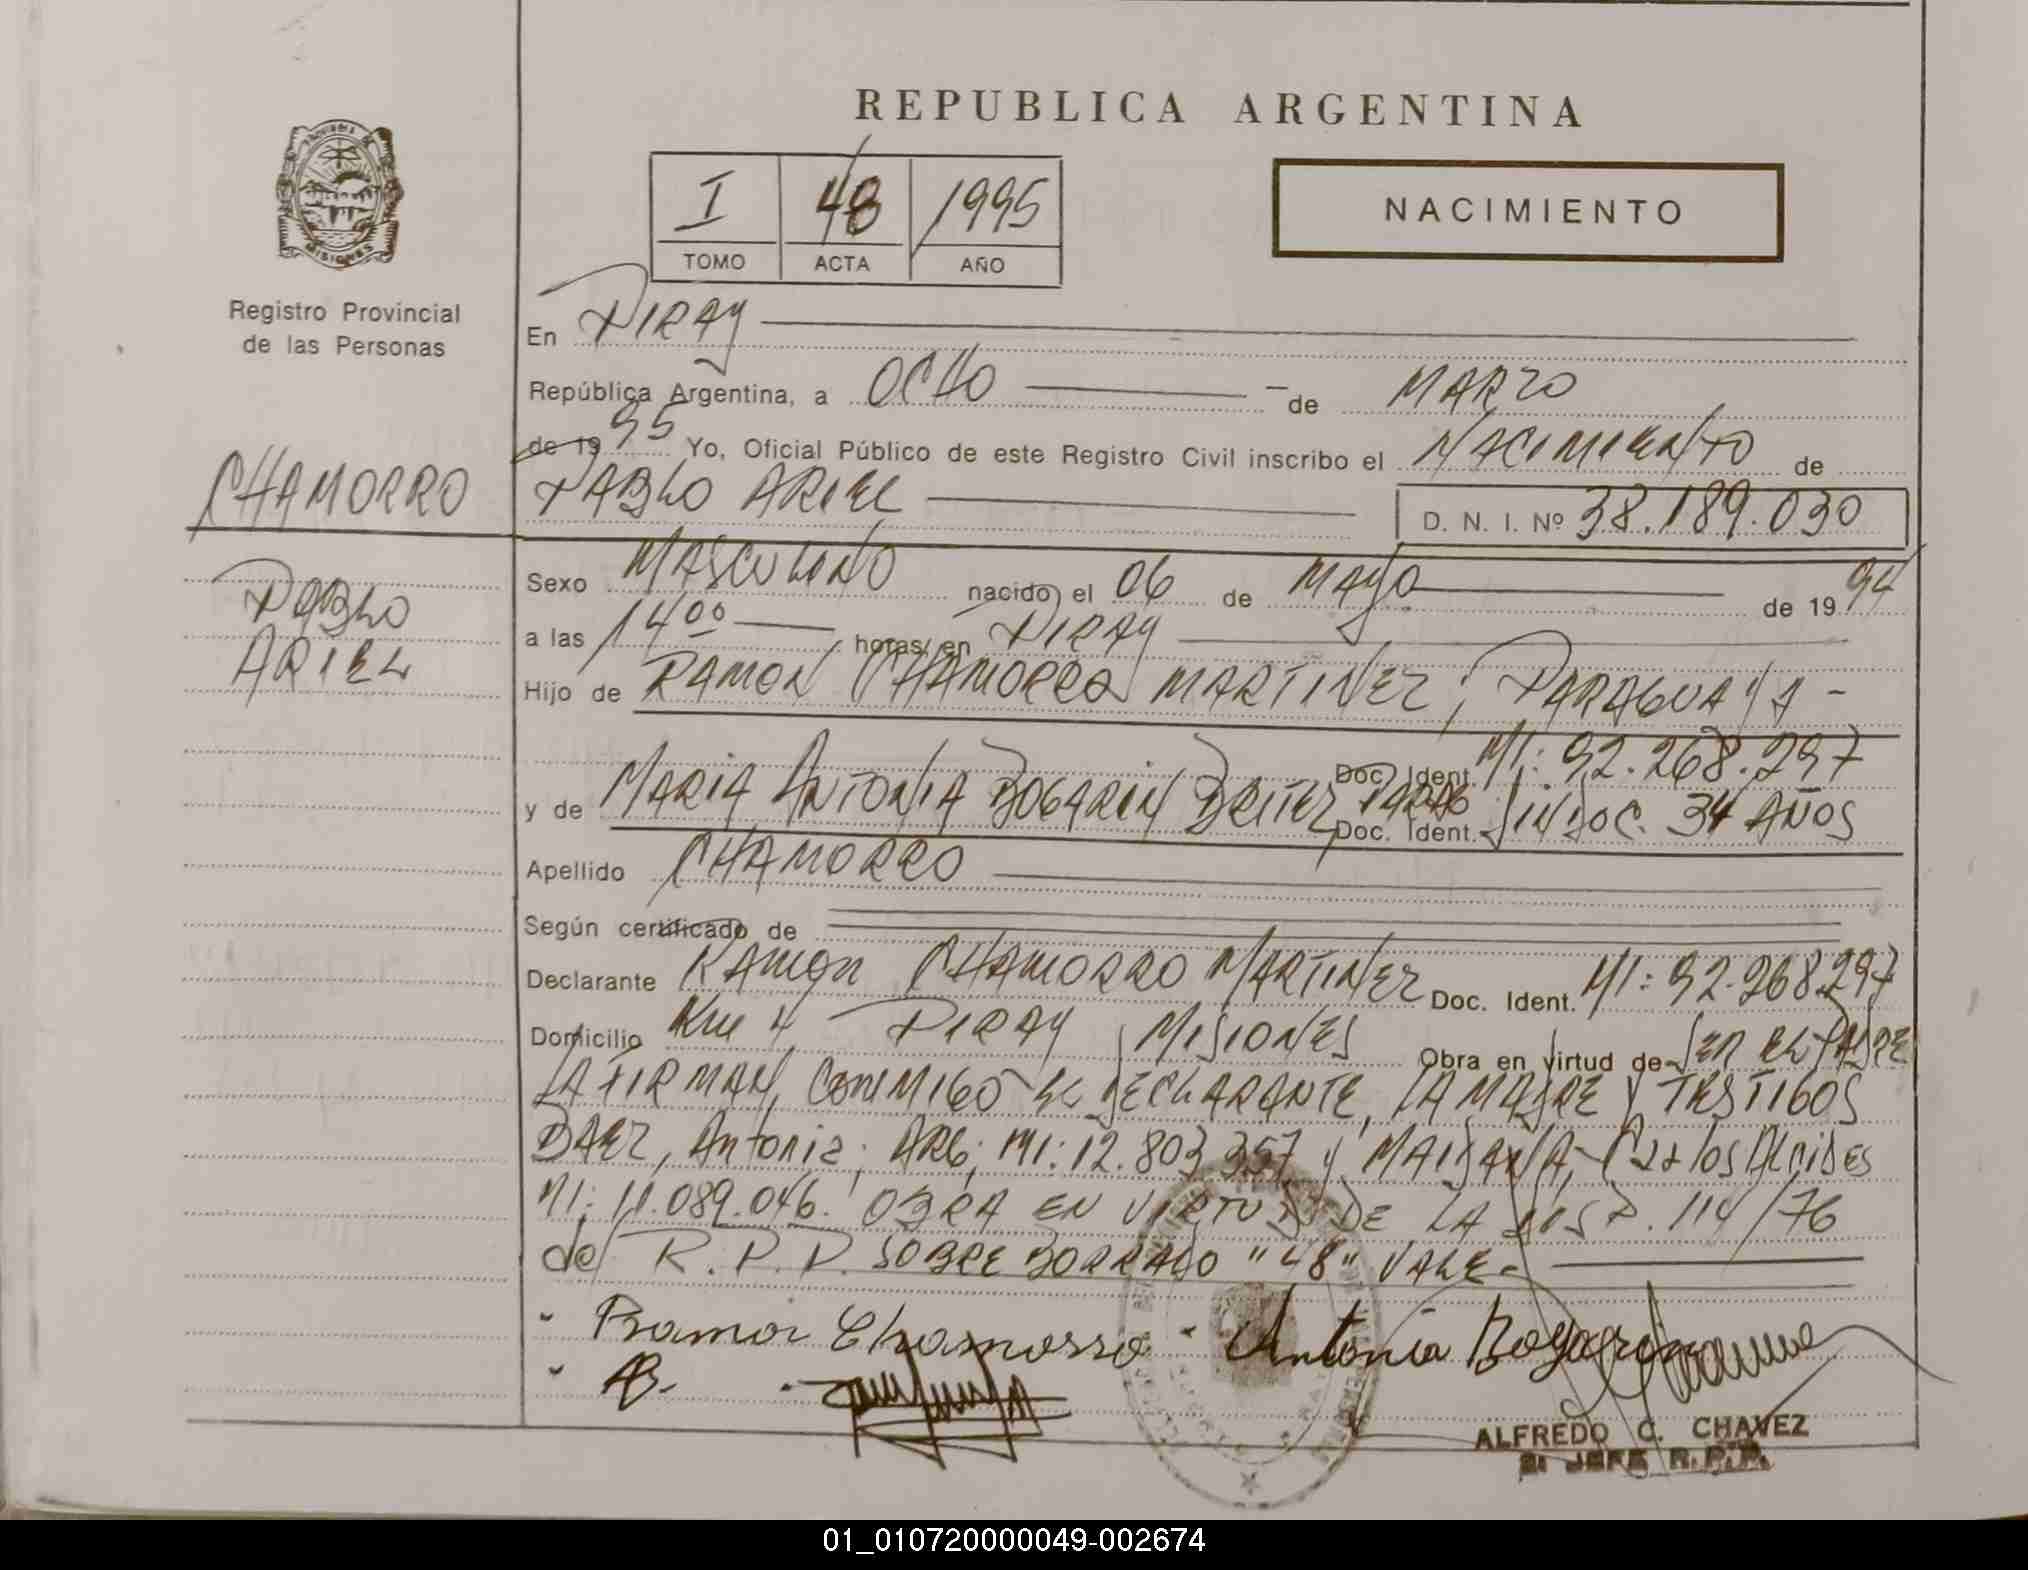 REPUBLICA ARGENTINA
PROVINCIA DE
MISIONES
I 48 1995
TOMO ACTA AÑO
NACIMIENTO
Registro Provincial
de las Personas
En PIRAY
República Argentina, a OCHO de MARZO
de 1995 Yo, Oficial Público de este Registro Civil inscribo el NACIMIENTO de
CHAMORRO
PABLO ARIEL D. N. I. Nº 38.189.030
PABLO
ARIEL
Sexo MASCULINO nacido el 06 de MAYO de 1994
a las 14 00 horas, en PIRAY
Hijo de RAMON CHAMORRO MARTINEZ; PARAGUAYA -
Doc. Ident. MI: 92.268.297
y de MARIA ANTONIA BOGARIN BRITEZ PARAG Doc. Ident. SIN DOC. 34 AÑOS
Apellido CHAMORRO
Según certificado de
Declarante RAMON CHAMORRO MARTINEZ Doc. Ident. MI: 92.268.297
Domicilio Km 4 PIRAY MISIONES Obra en virtud de SER EL PADRE
LA FIRMAN, CONMIGO EL DECLARANTE, LA MADRE Y TESTIGOS
BAEZ, Antonia; ARG; MI: 12.803.357 y MAIDANA, Carlos Alcides
MI: 11.089.046. OBRA EN VIRTUD DE LA DISP. 114/76
del R.P.P. SOBRE BORRADO "48" VALE-
Ramon Chamorro - Antonia Bogarin
AB.
ALFREDO C. CHAVEZ
JEFE R.P.P.
01_010720000049-002674